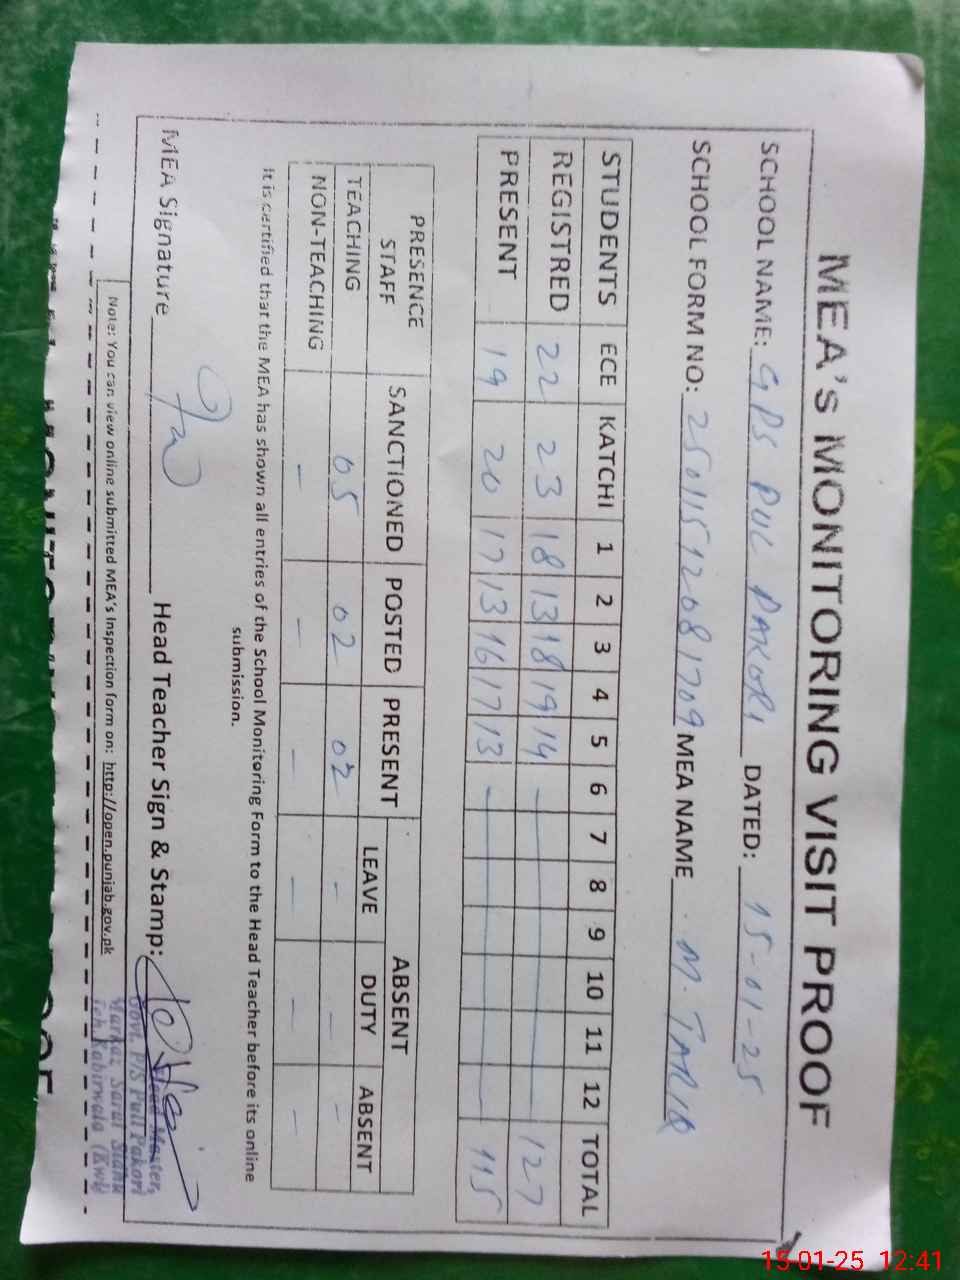 MEA'S MONITORING VISIT PROOF
SCHOOL NAME: GPS PUL PAKORI DATED: 15-01-25
SCHOOL FORM NO: MEA NAME M. TARIQ
STUDENTS ECE KATCHI 1 2 3 4 5 6 7 8 9 10 11 12 TOTAL
REGISTRED 22 23 18 13 18 19 14 — 127
PRESENT 19 20 17 13 16 17 13 — 115
PRESENCE STAFF SANCTIONED POSTED PRESENT ABSENT
LEAVE DUTY ABSENT
TEACHING 05 02 02 - - -
NON-TEACHING - - - - - -
It is certified that the MEA has shown all entries of the School Monitoring Form to the Head Teacher before its online
submission.
MEA Signature Head Teacher Sign & Stamp:
Head Master,
Govt. P/S Pull Pakori
Markaz Sarai Sidhu
Teh Kabirwala (Kwl)
Note: You can view online submitted MEA's Inspection form on: http://open.punjab.gov.pk
15-01-25 12:41